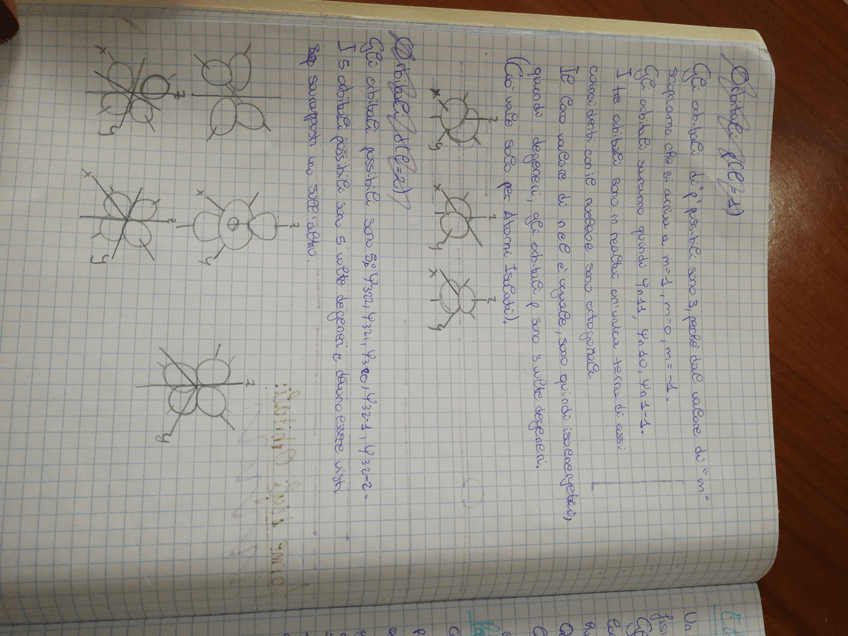 Orbitali p(l=1)
Gli orbitali di "p" possibili sono 3, perché dal valore di "m"
sappiamo che si arriva a m=1, m=0, m=-1.
Gli orbitali saranno quindi Ψn11, Ψn10, Ψn1-1.
I tre orbitali sono in realtà un'unica terna di assi
coincidenti con le sono ortogonali.
Il loro valore di n e l è uguale, sono quindi isoenergetici,
quindi degeneri, gli orbitali p sono 3 volte degeneri.
(Ciò vale solo per Atomi Isolati).
x z y
x z y
x z y
Orbitali d(l=2)
Gli orbitali possibili sono 5: Ψ322, Ψ321, Ψ320, Ψ32-1, Ψ32-2
I 5 orbitali possibili sono 5 volte degeneri e devono essere visti
sovrapposti uno sull'altro.
x z y
x z y
x z y
z y